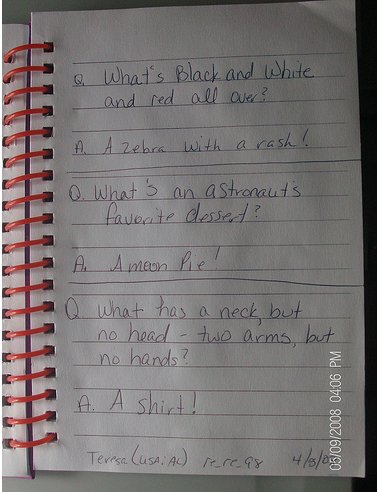 Q. What's Black and White
and red all over?
A. A zebra with a rash!
Q. What's an astronaut's
favorite dessert?
A. A moon Pie!
Q. What has a neck, but
no head - two arms, but
no hands?
A. A shirt!
Teresa (USA: AL) re_re_98
05/09/2008 04:06 PM